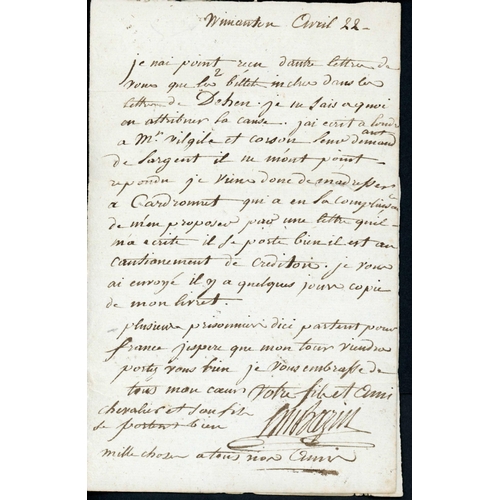 Wincanton Avril 22
je nai point recu dautre lettre de
vous que les 2 billet inclus dans la
lettre de Dehen. je ne sais a quoi
en attribuer la cause. j'ai ecrit a
a Mr. Virgile et corson leur demandant
de l'argent il ne m'ont point
repondu je viens donc de madresser
a Cardronnet qui a eu la complaisance
de m'en proposer par une lettre quil
ma ecrite il se porte bien il est au
cautionement de Crediton. je vous
ai envoyé il y a quelques jours copie
de mon livret.
plusieurs prisonnier dici partent pour
france jespere que mon tour viendra
portez vous bien je vous embrasse de
tous mon coeur Votre fils et Ami
chevalier et son fils
se portent bien
mille choses a tous nos Amis